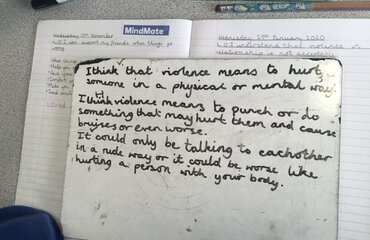 Wednesday 3rd November
L.O: I can support my friends when things go
wrong.
MindMate
Wednesday 29th January 2020
L.O: I understand that violence in
relationship is not acceptable.
I think that violence means to hurt
someone in a physical or mental way!
I think violence means to punch or do
something that may hurt them and cause
bruises or even worse.
It could only be talking to eachother
in a rude way or it could be worse like
hurting a person with your body.